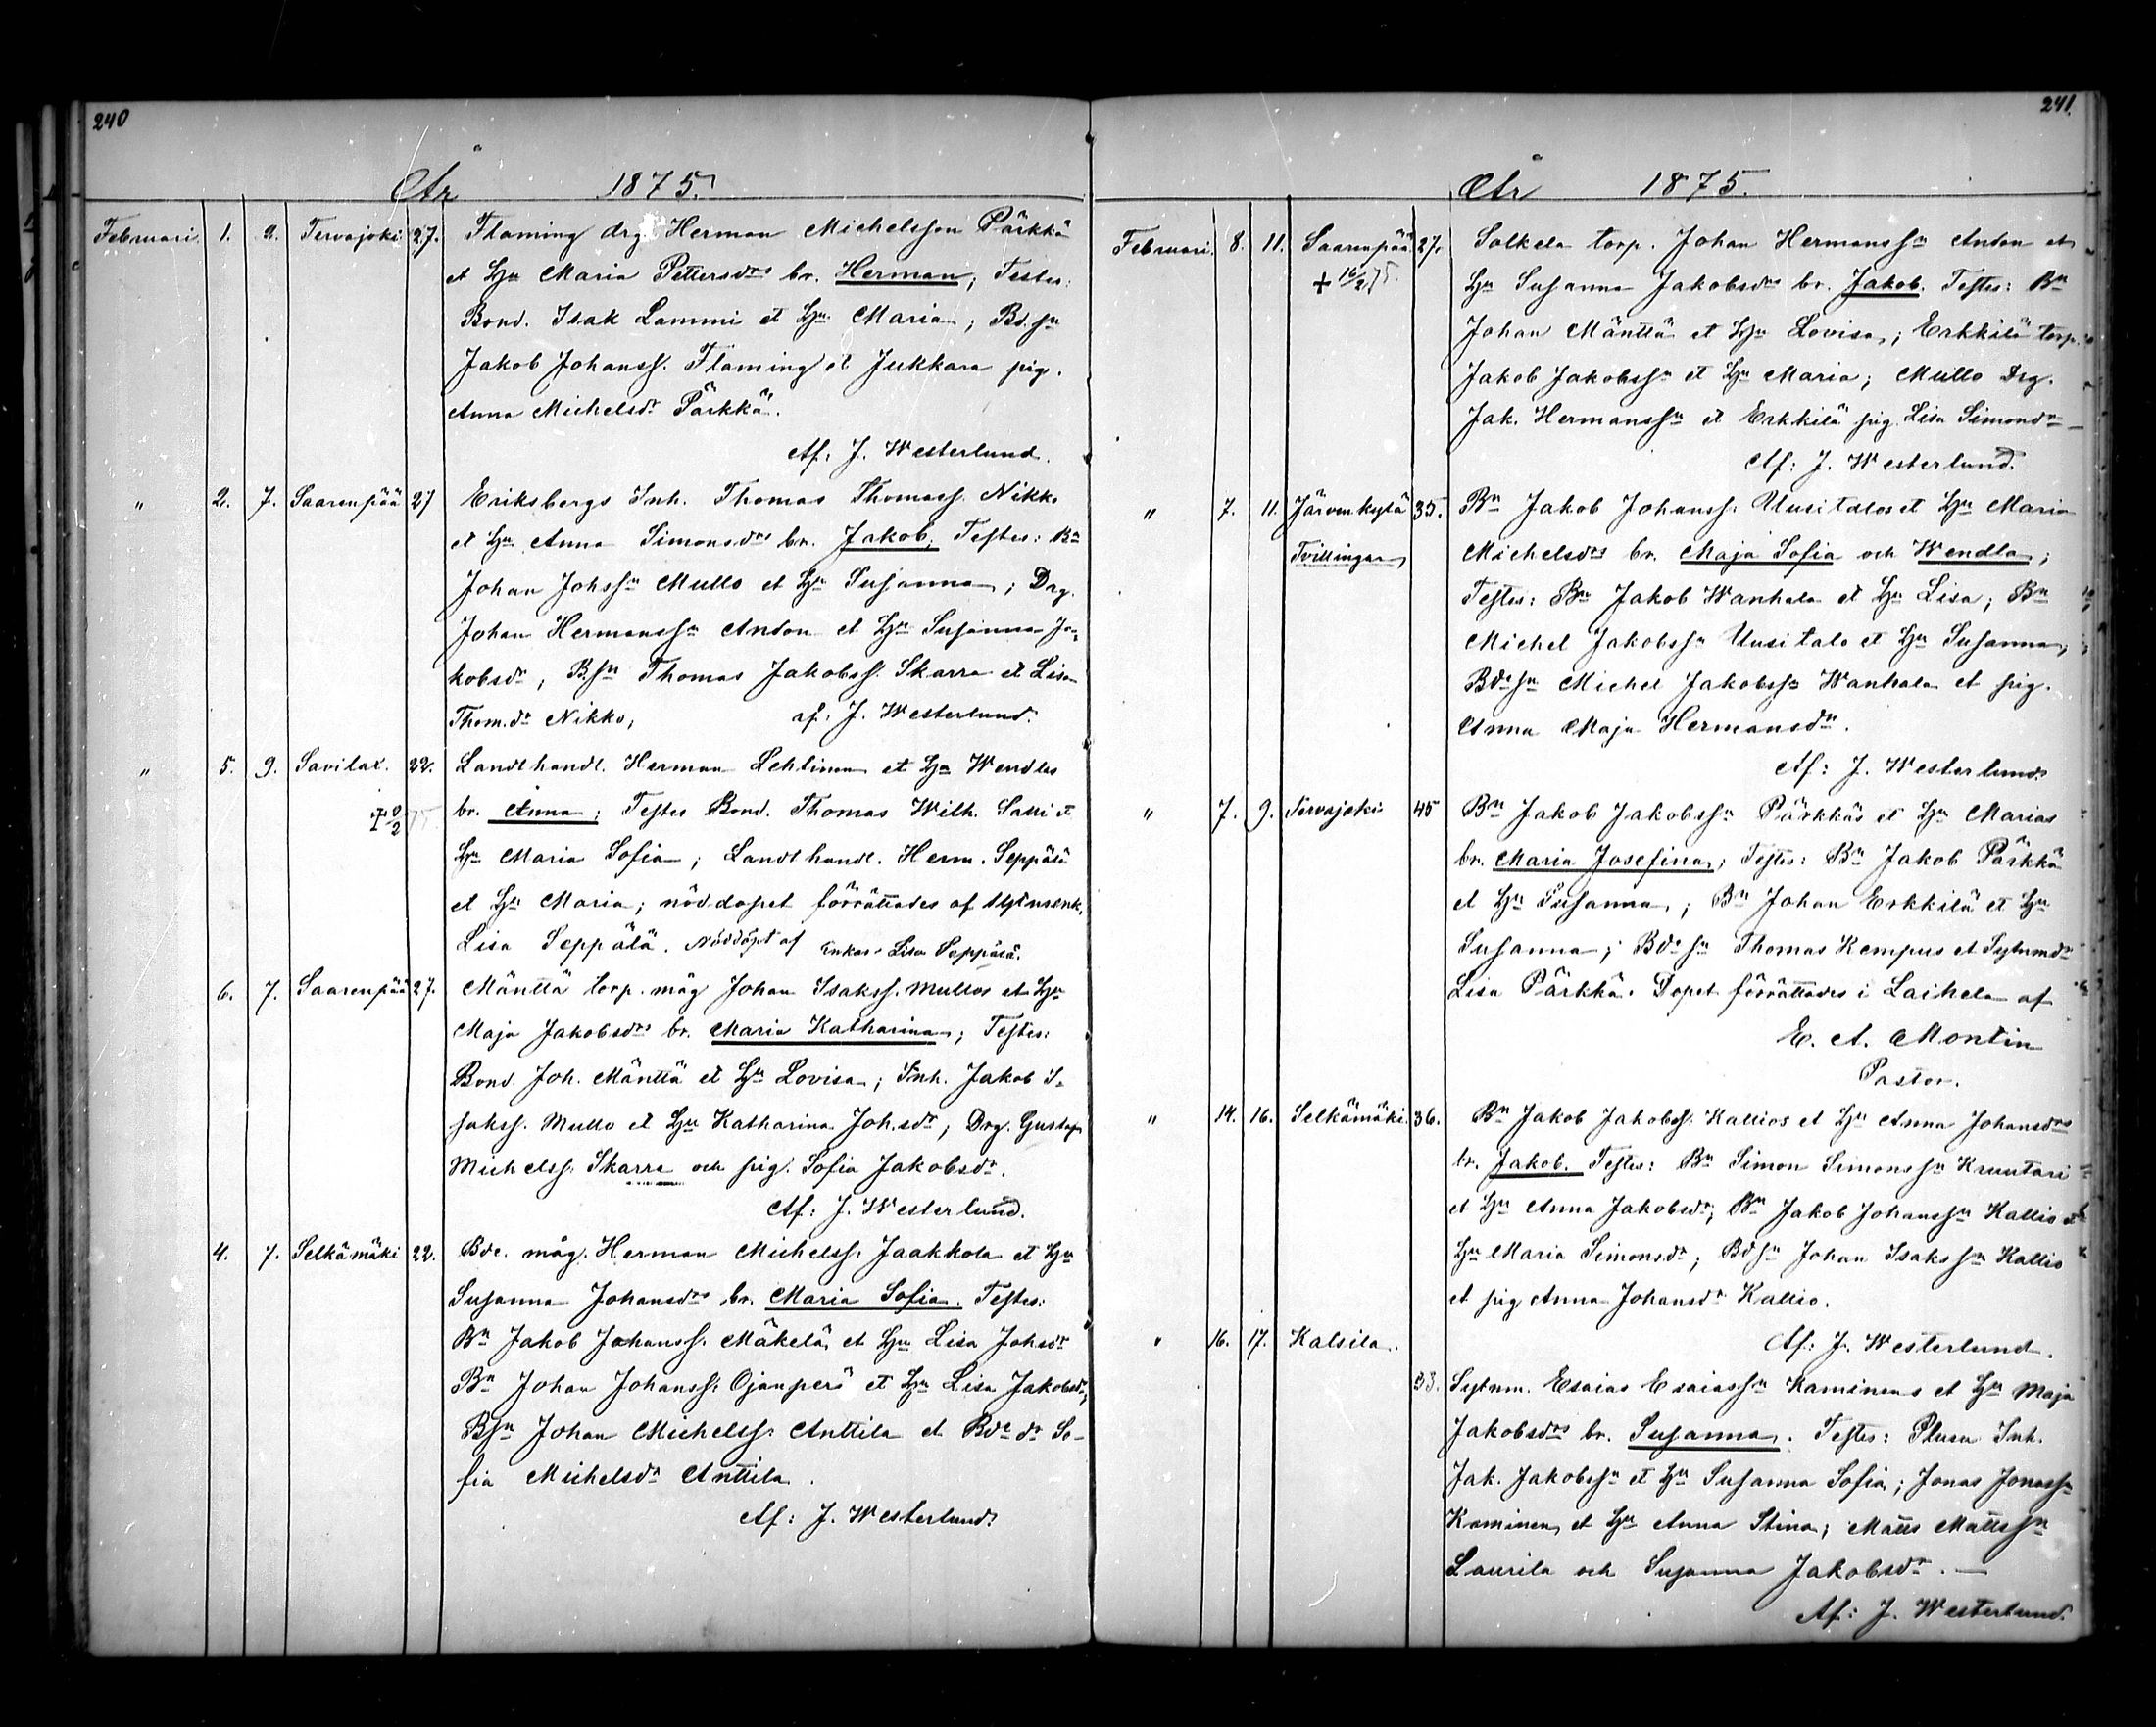 240
År 1875.
Februari. 1. 2. Tervajoki 27. Flaming drg. Herman Michelsson Pärkkä
et Hu Maria Pettersdrs br. Herman; Testes:
Bond. Isak Lammi et Hu Maria; Bd. sn
Jakob Johanss. Flaming et Jukkara pig.
Anna Michelsdr Pärkkä.
Af: J. Westerlund.
" 2. 7. Saarenpää 27 Eriksbergs Inh. Thomas Thomass. Nikko
et Hu Anna Simonsdrs br. Jakob; Testes: Bn
Johan Johssn Mullo et Hu Susanna; Drg.
Johan Hermanssn Anton et Hu Susanna Ja-
kobsdr; B.sn Thomas Jakobss. Skarra et Lisa
Thom.dr Nikko; af: J. Westerlund.
" 5. 9. Savilax. 22. Landthandl. Herman Lehtinen et Hu Wendlas
br. Anna; Testes Bond. Thomas Wilh. Salli et
Hu Maria Sofia; Landthandl. Herm. Seppälä
et Hu Maria; nöddopet förrättades af Sytn.enk.
Lisa Seppälä. Nöddöpt af Enkan Lisa Seppälä.
6. 7. Saarenpää 27. Mänttä torp. måg Johan Isakss. Mullos et Hu
Maja Jakobsdrs br. Maria Katharina; Testes:
Bond. Joh. Mänttä et Hu Lovisa; Inh. Jakob I-
sakss. Mullo et Hu Katharina Joh.sdr; Drg. Gustaf
Michelss. Skarra och pig. Sofia Jakobsdr.
Af: J. Westerlund.
4. 7. Selkämäki 22. Bde. måg. Herman Michelss. Jaakkola et Hu
Susanna Johansdrs br. Maria Sofia. Testes:
Bn Jakob Johanss. Mäkelä et Hu Lisa Johsdr
Bn Johan Johanss. Ojanperä et Hu Lisa Jakobsdr;
Bsn Johan Michelss. Anttila et Bde dr So-
fia Michelsdr Anttila.
Af: J. Westerlund.
241.
År 1875.
Februari. 8. 11. Saarenpää 27. Solkela torp. Johan Hermanssn Anton et
+ 16/2 75. Hu Susanna Jakobsdrs br. Jakob. Testes: Bn
Johan Mänttä et Hu Lovisa; Erkkilä torp.
Jakob Jakobssn et Hu Maria; Mullo Drg.
Jak. Hermanssn et Erkkilä pig. Lisa Simondr
Af: J. Westerlund.
" 7. 11. Järvenkylä 35. Bn Jakob Johanss. Uusitalos et Hu Maria
Tvillingar Michelsdrs br. Maja Sofia och Wendla;
Testes: Bn Jakob Wanhala et Hu Lisa; Bn
Michel Jakobssn Uusitalo et Hu Susanna;
Bdesn Michel Jakobssn Wanhala et pig.
Anna Maja Hermansdr.
Af: J. Westerlund.
" 7. 9. Tervajoki 45 Bn Jakob Jakobssn Pärkkäs et Hu Marias
br. Maria Josefina; Testes: Bn Jakob Pärkkä
et Hu Susanna; Bn Johan Erkkilä et Hu
Susanna; Bdesn Thomas Kempus et Sytnmdr
Lisa Pärkkä. Dopet förrättades i Laihela af
E. A. Montin
Pastor.
" 14. 16. Selkämäki. 36. Bn Jakob Jakobss. Kallios et Hu Anna Johansdrs
br. Jakob. Testes: Bn Simon Simonssn Kruutari
et Hu Anna Jakobsdr; Bn Jakob Johanssn Kallio et
Hu Maria Simonsdr; Bdsn Johan Isakssn Kallio
et pig Anna Johansdr Kallio.
Af: J. Westerlund.
" 16. 17. Kalsila.
33. Sytnm. Esaias Esaiassn Kaminens et Hu Maja
Jakobsdrs br. Susanna. Testes: Plusu Inh.
Jak. Jakobssn et Hu Susanna Sofia; Jonas Jonassn
Kaminen et Hu Anna Stina; Matts Mattssn
Laurila och Susanna Jakobsdr.
Af: J. Westerlund.